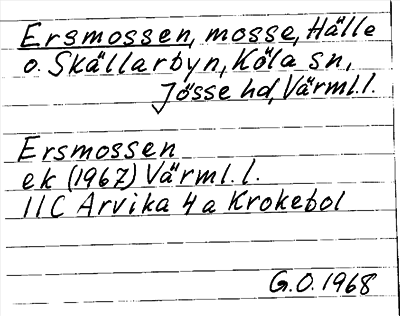 Ersmossen, mosse, Hälle
o. Skällarbyn, Köla sn,
Jösse hd, Värml.l.
Ersmossen
ek (1967) Värml.l.
11C Arvika 4a Krokebol
G.O. 1968